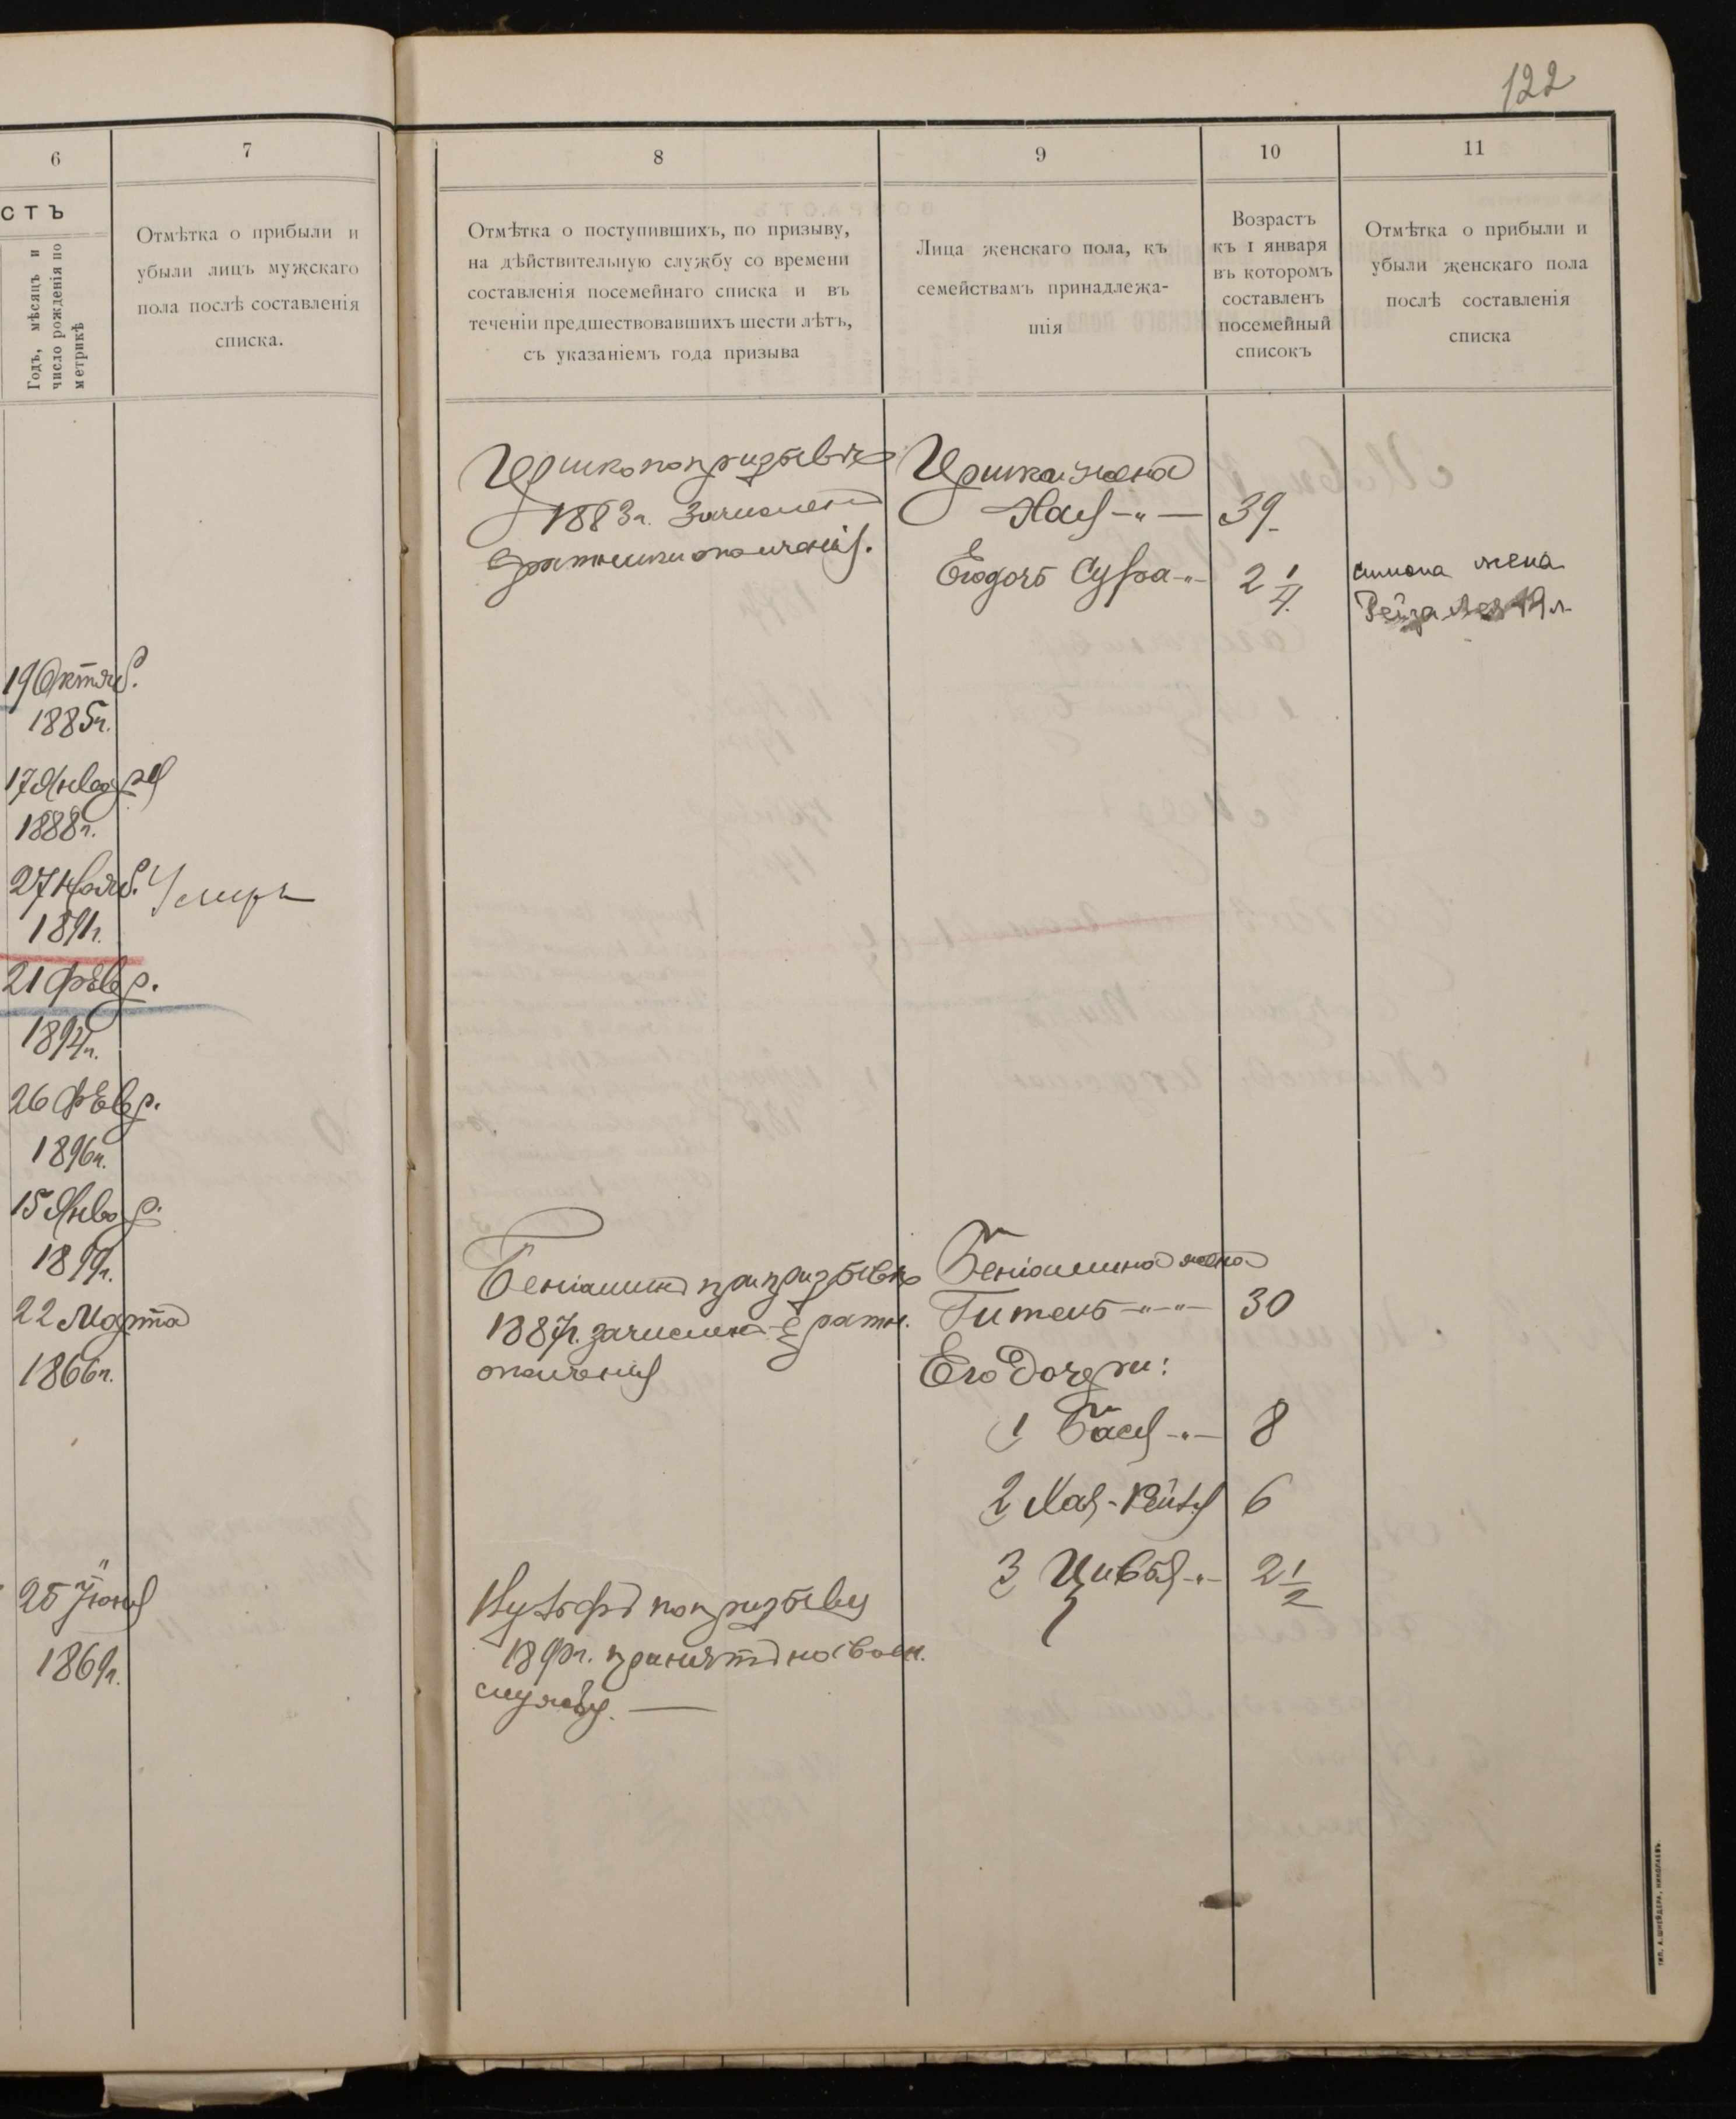 122
6
7
8
9
10
11
СТЪ
Годъ, мѣсяцъ и
число рожденія по
метрикѣ
Отмѣтка о прибыли и
убыли лицъ мужскаго
пола послѣ составленія
списка.
Отмѣтка о поступившихъ, по призыву,
на дѣйствительную службу со времени
составленія посемейнаго списка и въ
теченіи предшествовавшихъ шести лѣтъ,
съ указаніемъ года призыва
Лица женскаго пола, къ
семействамъ принадлежа-
щія
Возрастъ
къ 1 января
въ которомъ
составленъ
посемейный
списокъ
Отмѣтка о прибыли и
убыли женскаго пола
послѣ составленія
списка
19 Октяб.
1885г.
17 Января
1888г.
27 Нояб. Умеръ
1891г.
21 Февр.
1894г.
26 Февр.
1896г.
15 Январ.
1899г.
22 Марта
1866г.
25 Іюня
1869г.
по призыву
1883г. зачисленъ
ратники ополченія.
Беніаминъ при призывѣ
1887г. зачисленъ в ратн.
ополченія
по призыву
1890г. принятъ на воен.
службу.
жена
Хая 39
Его дочь Сура 2 1/4
жена
19 л
Беніамина жена
Гитель 30
Его дочери:
1 Бася 8
2 Хая- 6
3 Цивья 2 1/2
ТИП. А. ШНЕЙДЕРА, НИКОЛАЕВЪ